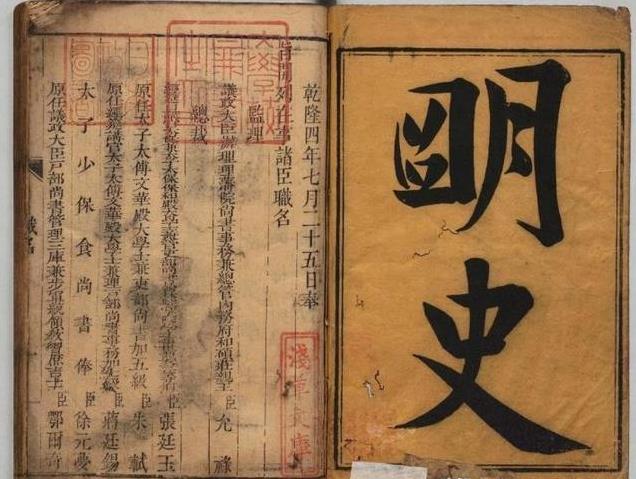 明史
乾隆四年七月二十五日奉
旨開列在事諸臣職名
監理
議政大臣辦理理藩院尚書事務兼總管內務府和碩莊親王臣允祿
總裁
臣張廷玉
原任太子太傅文華殿大學士兼吏部尚書加五級臣朱軾
原任經筵講官太子太傅文華殿大學士兼理戶部尚書事務加級臣蔣廷錫
太子少保食尚書俸臣徐元夢
原任議政大臣戶部尚書管理三庫兼步軍統領教習庶吉士臣鄂爾奇
職名
淺草文庫